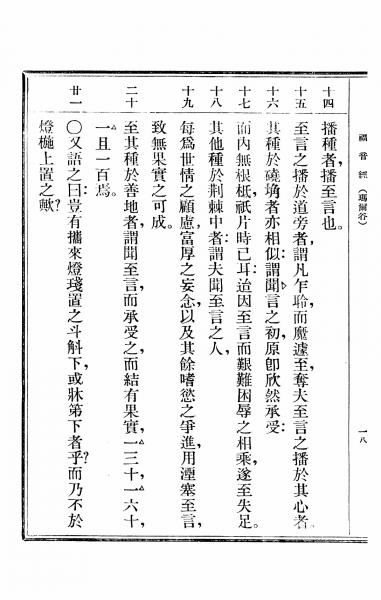 福音經 （瑪爾谷）
一八
十四
播種者，播至言也。
十五
至言之播於道旁者，謂凡乍聆，而魔遽至，奪夫至言之播於其心者。
十六
其種於磽埆者亦相似：謂聞言之初，原卽欣然承受：
十七
而內無根柢，祇片時已耳：迨因至言而艱難困辱之相乘，遂至失足。
十八
其他種於荆棘中者：謂夫聞至言之人，
十九
每爲世情之顧慮，富厚之妄念，以及其餘嗜慾之爭進，用湮塞至言，
致無果實之可成。
二十
至其種於善地者，謂聞至言，而承受之，而結有果實，一三十，一六十，
一且一百焉。
廿一
〇又語之曰：豈有攜來燈琖，置之斗斛下，或牀第下者乎？而乃不於
燈檠上置之歟？